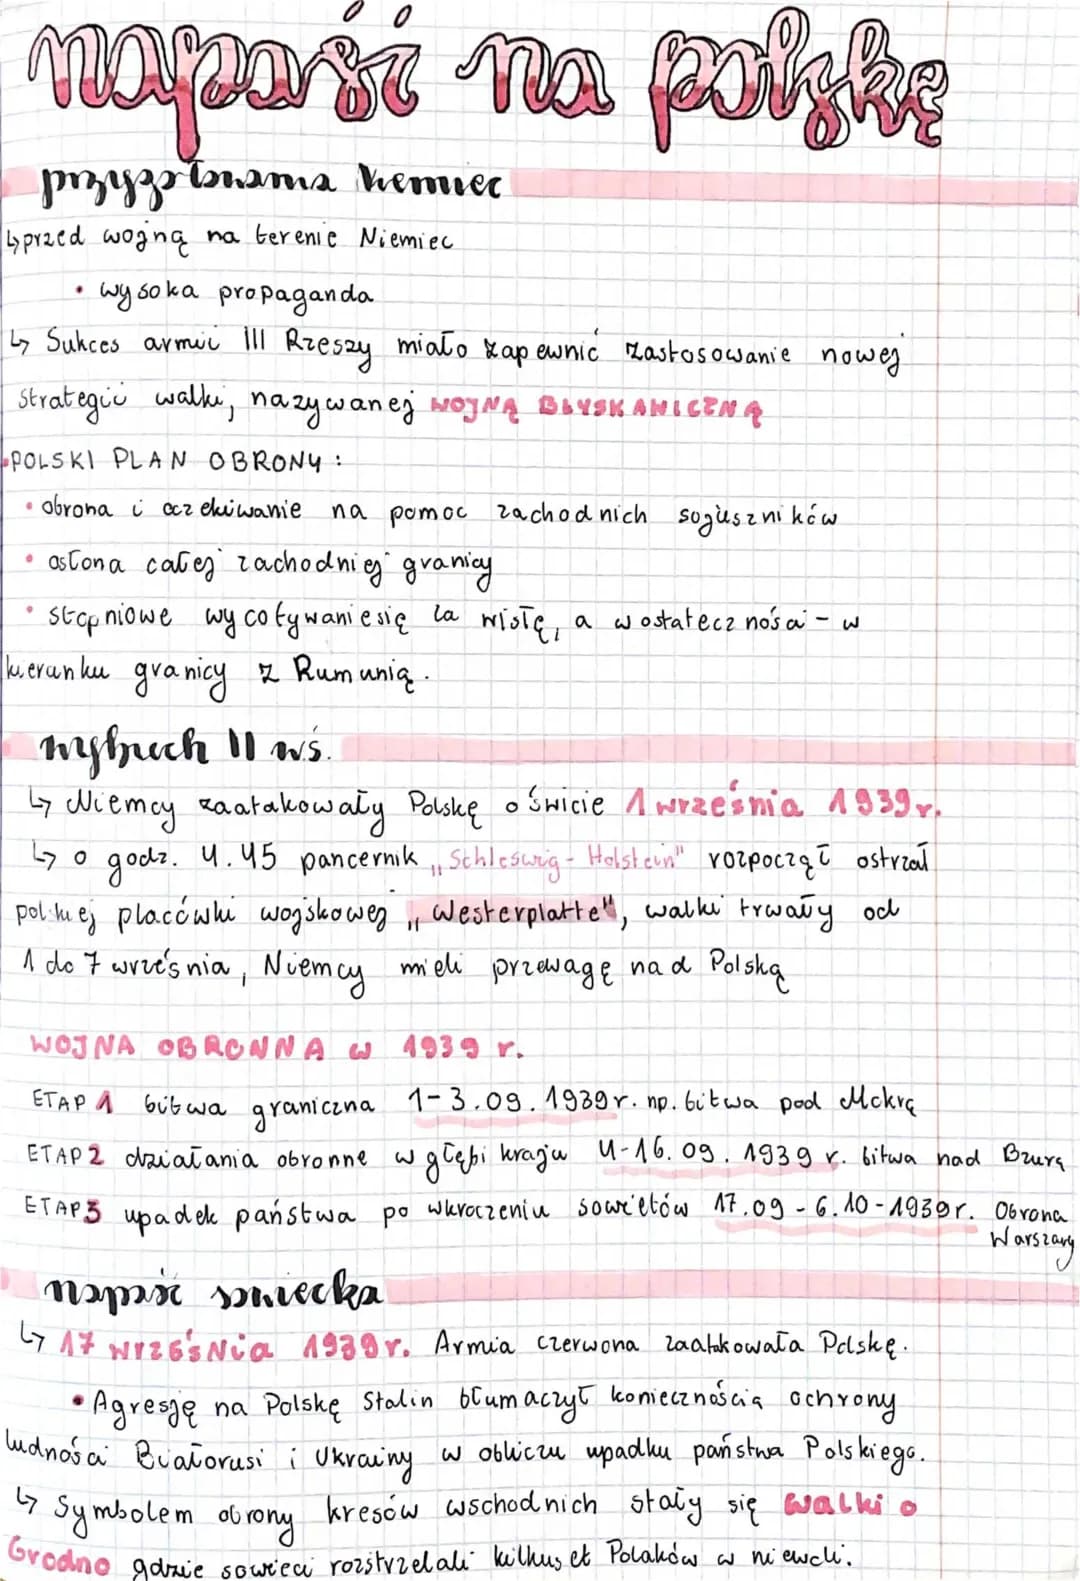 napaść na polskę
przygotowania Niemiec
↳ przed wojną na terenie Niemiec
• wysoka propaganda
↳ Sukces armii III Rzeszy miało zapewnić zastosowanie nowej
strategii walki, nazywanej WOJNĄ BŁYSKAWICZNĄ
•POLSKI PLAN OBRONY:
• obrona i oczekiwanie na pomoc zachodnich sojuszników
• osłona całej zachodniej granicy
• stopniowe wycofywanie się za wisłę, a w ostateczności - w
kierunku granicy z Rumunią.
wybuch II wś.
↳ Niemcy zaatakowały Polskę o świcie 1 września 1939r.
↳ o godz. 4.45 pancernik „Schleswig-Holstein" rozpoczął ostrzał
polskiej placówki wojskowej „Westerplatte", walki trwały od
1 do 7 września, Niemcy mieli przewagę nad Polską
WOJNA OBRONNA w 1939 r.
ETAP 1 bitwa graniczna 1-3.09.1939r. np. bitwa pod Mokrą
ETAP 2 działania obronne w głębi kraju 4-16.09.1939 r. bitwa nad Bzurą
ETAP 3 upadek państwa po wkroczeniu sowietów 17.09-6.10-1939r. Obrona
Warszawy
napaść sowiecka
↳ 17 wrześNia 1939r. Armia czerwona zaatakowała Polskę.
• Agresję na Polskę Stalin tłumaczył koniecznością ochrony
ludności Białorusi i Ukrainy w obliczu upadku państwa Polskiego.
↳ Symbolem obrony kresów wschodnich stały się walki o
Grodno gdzie sowieci rozstrzelali kilkuset Polaków w niewoli.